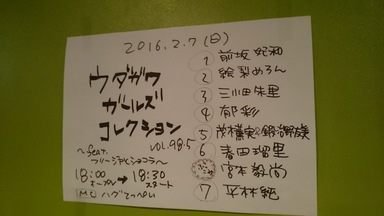 2016.2.7(日)
ウダガワ
ガールズ
コレクション
VOL.98.5
〜feat.
フリージャズとショコラ〜
18:00 → 18:30
オープン スタート
MC ハグてっぺい
① 前坂妃和
② 絵梨めろん
③ 三川田朱里
④ 郁彩
⑤
⑥ 春田瑠里
宮本毅尚
⑦ 平林純